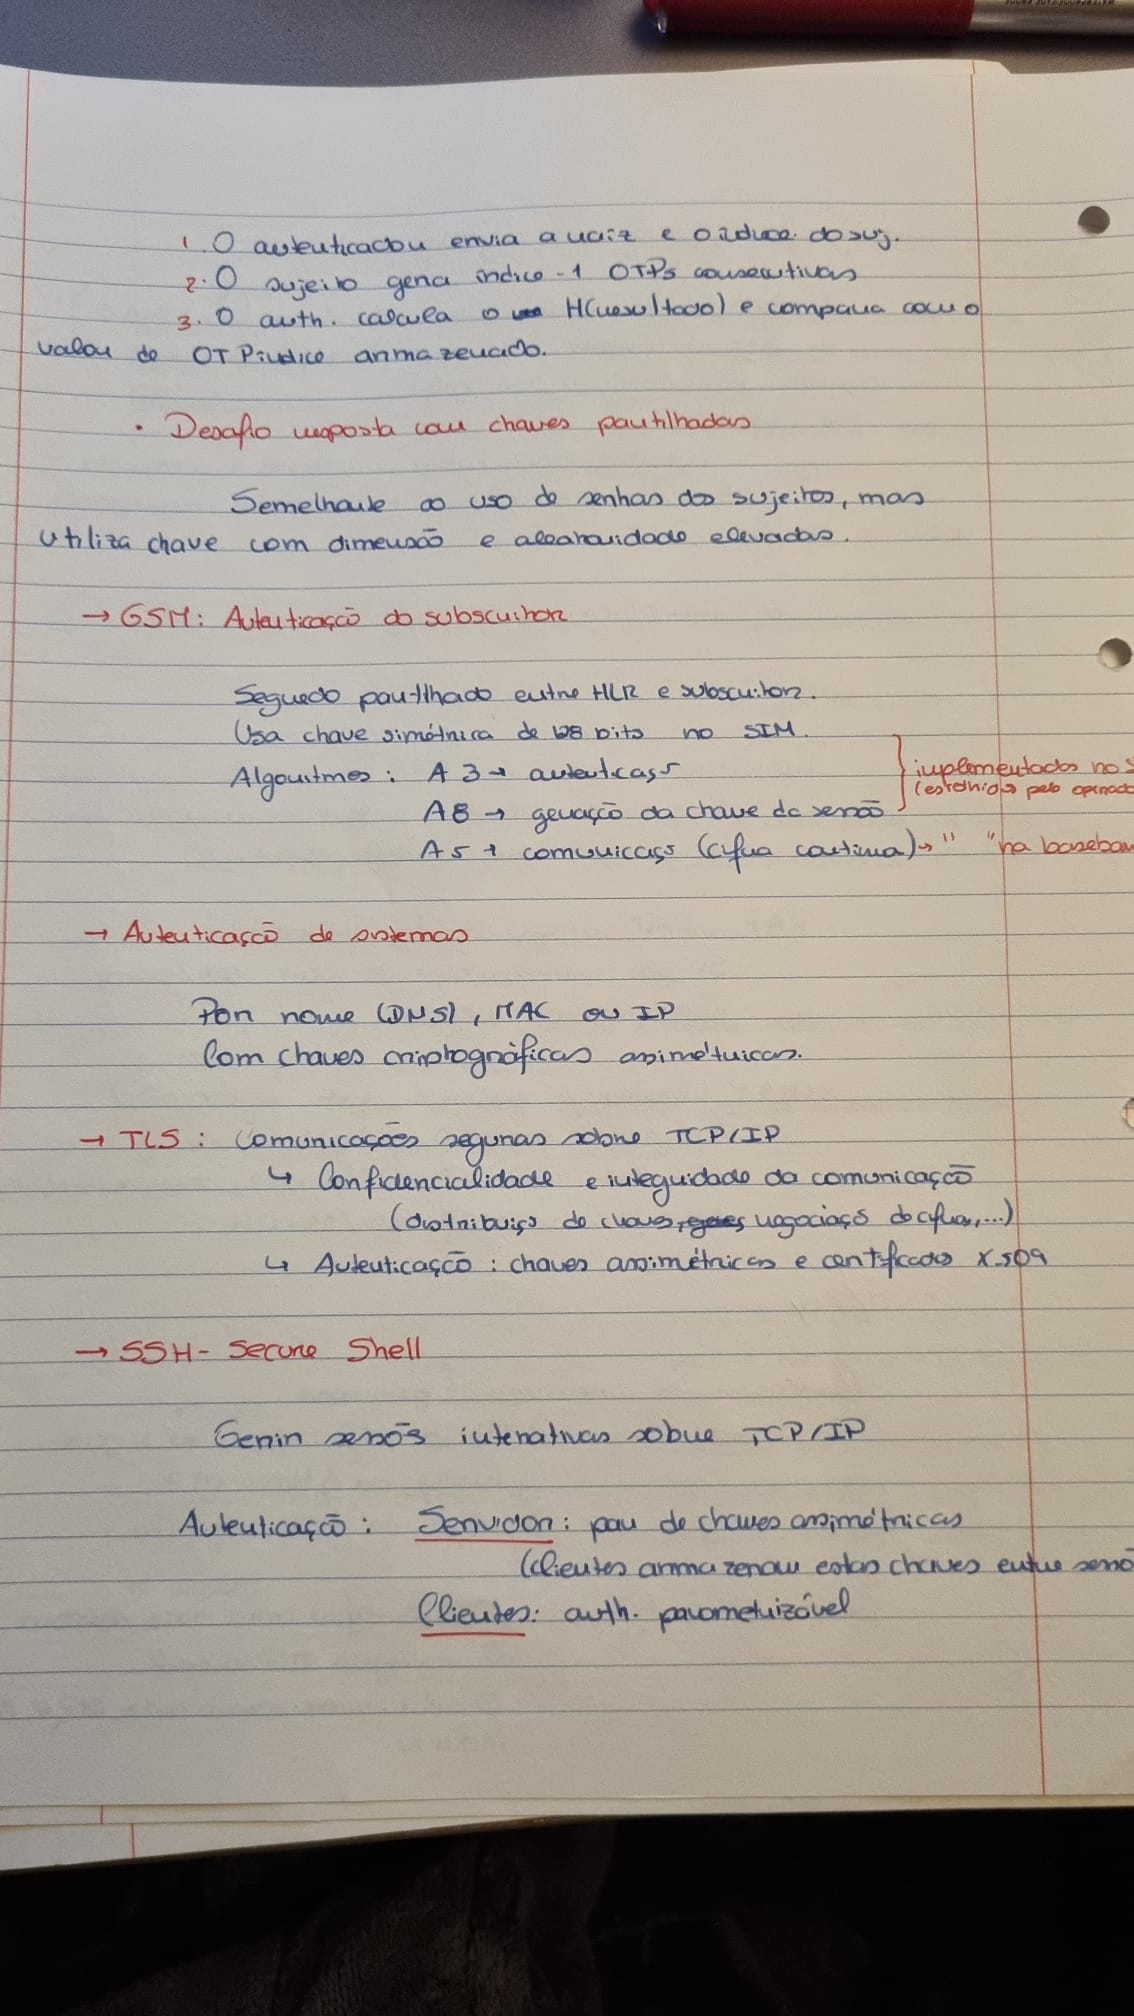 1. O autenticador envia a raiz e o índice do suj.
2. O sujeito gera índice -1 OTPs consecutivas
3. O auth. calcula o H(resultado) e compara com o
valor de OTPíndice armazenado.
• Desafio resposta com chaves partilhadas
Semelhante ao uso de senhas dos sujeitos, mas
utiliza chave com dimensão e aleatoriedade elevadas.
→ GSM: Autenticação do subscritor
Segredo partilhado entre HLR e subscritor.
Usa chave simétrica de 128 bits no SIM.
Algoritmos: A3 → autenticação
} implementados no S
(escolhidos pelo operado
A8 → geração da chave de sessão
A5 → comunicação (cifra contínua) → " "na baseban
→ Autenticação de sistemas
Por nome (DNS), MAC ou IP
Com chaves criptográficas assimétricas.
→ TLS: Comunicações seguras sobre TCP/IP
↳ Confidencialidade e integridade da comunicação
(distribuição de chaves, negociação de cifras,...)
↳ Autenticação: chaves assimétricas e certificados X.509
→ SSH - Secure Shell
Gerir sessões interativas sobre TCP/IP
Autenticação: Servidor: par de chaves assimétricas
(clientes armazenam estas chaves entre sessõ
Clientes: auth. parametrizável